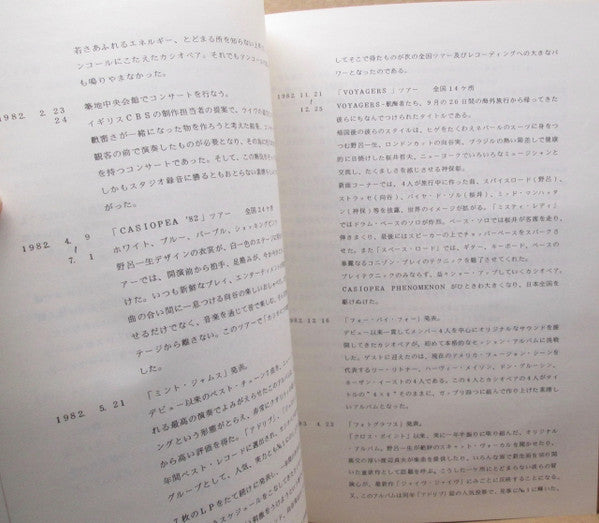 若さあふれるエネルギー、とどまる所を知らない
ンコールにこたえたカシオペア。それでもアンコール
も鳴りやまなかった。
1982. 2. 23
24
築地中央会館でコンサートを行なう。
イギリスCBSの制作担当者の提案で、
緻密さが一緒になった物を作ろうと考えた結果、
観客の前で演奏したものが必要となり、
を持つコンサートであった。そして、この
しかもスタジオ録音に勝るともおとらない素晴らし
1982. 4. 9
7. 1
「CASIOPEA '82」ツアー 全国24ケ所
ホワイト、ブルー、パープル、ショッキング
野呂一生デザインの衣裳が、白一色のステージに
アーでは、開演前から拍手、足踏みが、
けた。いつも新鮮なプレイ、エンターテイメント
曲の合い間に一息つける向谷の楽しいおしゃべり、
せるだけでなく、音楽を通じて皆で楽しむ、
テージから離さない。このツアーで「カシオ
した。
1982. 5. 21
「ミント・ジャムス」発表。
デビュー以来のベスト・チューン7曲を、
れる最高の演奏でよみがえらせたこのアルバム
ングという形態がとらえ、非常に
から高い評価を得た。「アドリブ」、
年間ベスト・レコードに選出され、
グループとして、人気、実力とも
7枚のLPをたて続けに発表し、
スケジュールをこなしてきた
刺激をそう
してそこで得たものが次の全国ツアー及びレコーディングへの大きなパ
ワーとなったのである。
1982. 11. 21
12. 25
「VOYAGERS」ツアー 全国14ケ所
VOYAGERS−航海者たち、9月の20日間の海外旅行から帰ってきた
彼らにちなんでつけられたタイトルである。
帰国後の彼らのスタイルは、ヒゲをたくわえネパールのスーツに身をつ
つむ野呂一生、ロンドンカットの向谷実、ブラジルの熱い陽差しで健康
的に日焼けした桜井哲夫、ニューヨークでいろいろなミュージシャンと
交流し、たくましさを感じさせる神保彰。
新曲コーナーでは、4人が旅行中に作った曲、スパイスロード(野呂)、
ストラッセ(向谷)、バイヤ・ド・ソル(桜井)、ミッド・マンハッタ
ン(神保)等を披露、世界のイメージが拡がる。「ミスティ・レディ」
ではドラム・ベースのソロが炸烈。ベース・ソロでは桜井が客席を走り、
弾きまくり、最後にはスピーカーの上でチョッパーベースをスパークさ
せた。また「スペース・ロード」では、ギター、キーボード、ベースの
華麗なるユニゾン・プレイのテクニックで観衆を魅了させてくれた。
プレイテクニックのみならず、益々ショー・アップしていくカシオペア。
CASIOPEA PHENOMENONがひときわ大きくなり、日本全国を
駆けぬけた。
1982. 12. 16
「フォー・バイ・フォー」発表。
デビュー以来一貫してメンバー4人を中心にオリジナルなサウンドを展
開してきたカシオペアが、初めてのセッション・アルバムに挑戦
した。ゲストに迎えたのは、現在のアメリカ・フュージョン・シーンを
代表するリー・リトナー、ハーヴィー・メイソン、ドン・グルーシン、
ネーザン・イーストの4人である。この4人とカシオペアの4人がタイ
トルの"4×4"そのままに、ガップリ四つに組んで作り上げた素晴し
いアルバムとなった。
「フォトグラフス」発表。
「クロス・ポイント」以来、実に一年半振りに取り組んだ、オリジナル
・アルバム。野呂一生が絶妙のスキャット・ヴォーカルを聞かせたり、
このアルバムは同年「アドリブ」誌の人気投票で、見事に№1に輝いた。